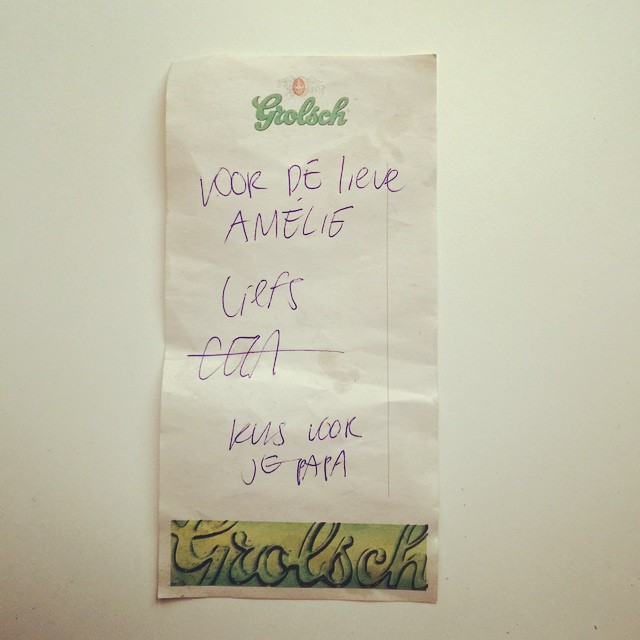 Grolsch
VOOR DE lieve
AMÉLIE
Liefs
KUS VOOR
JE PAPA
Grolsch